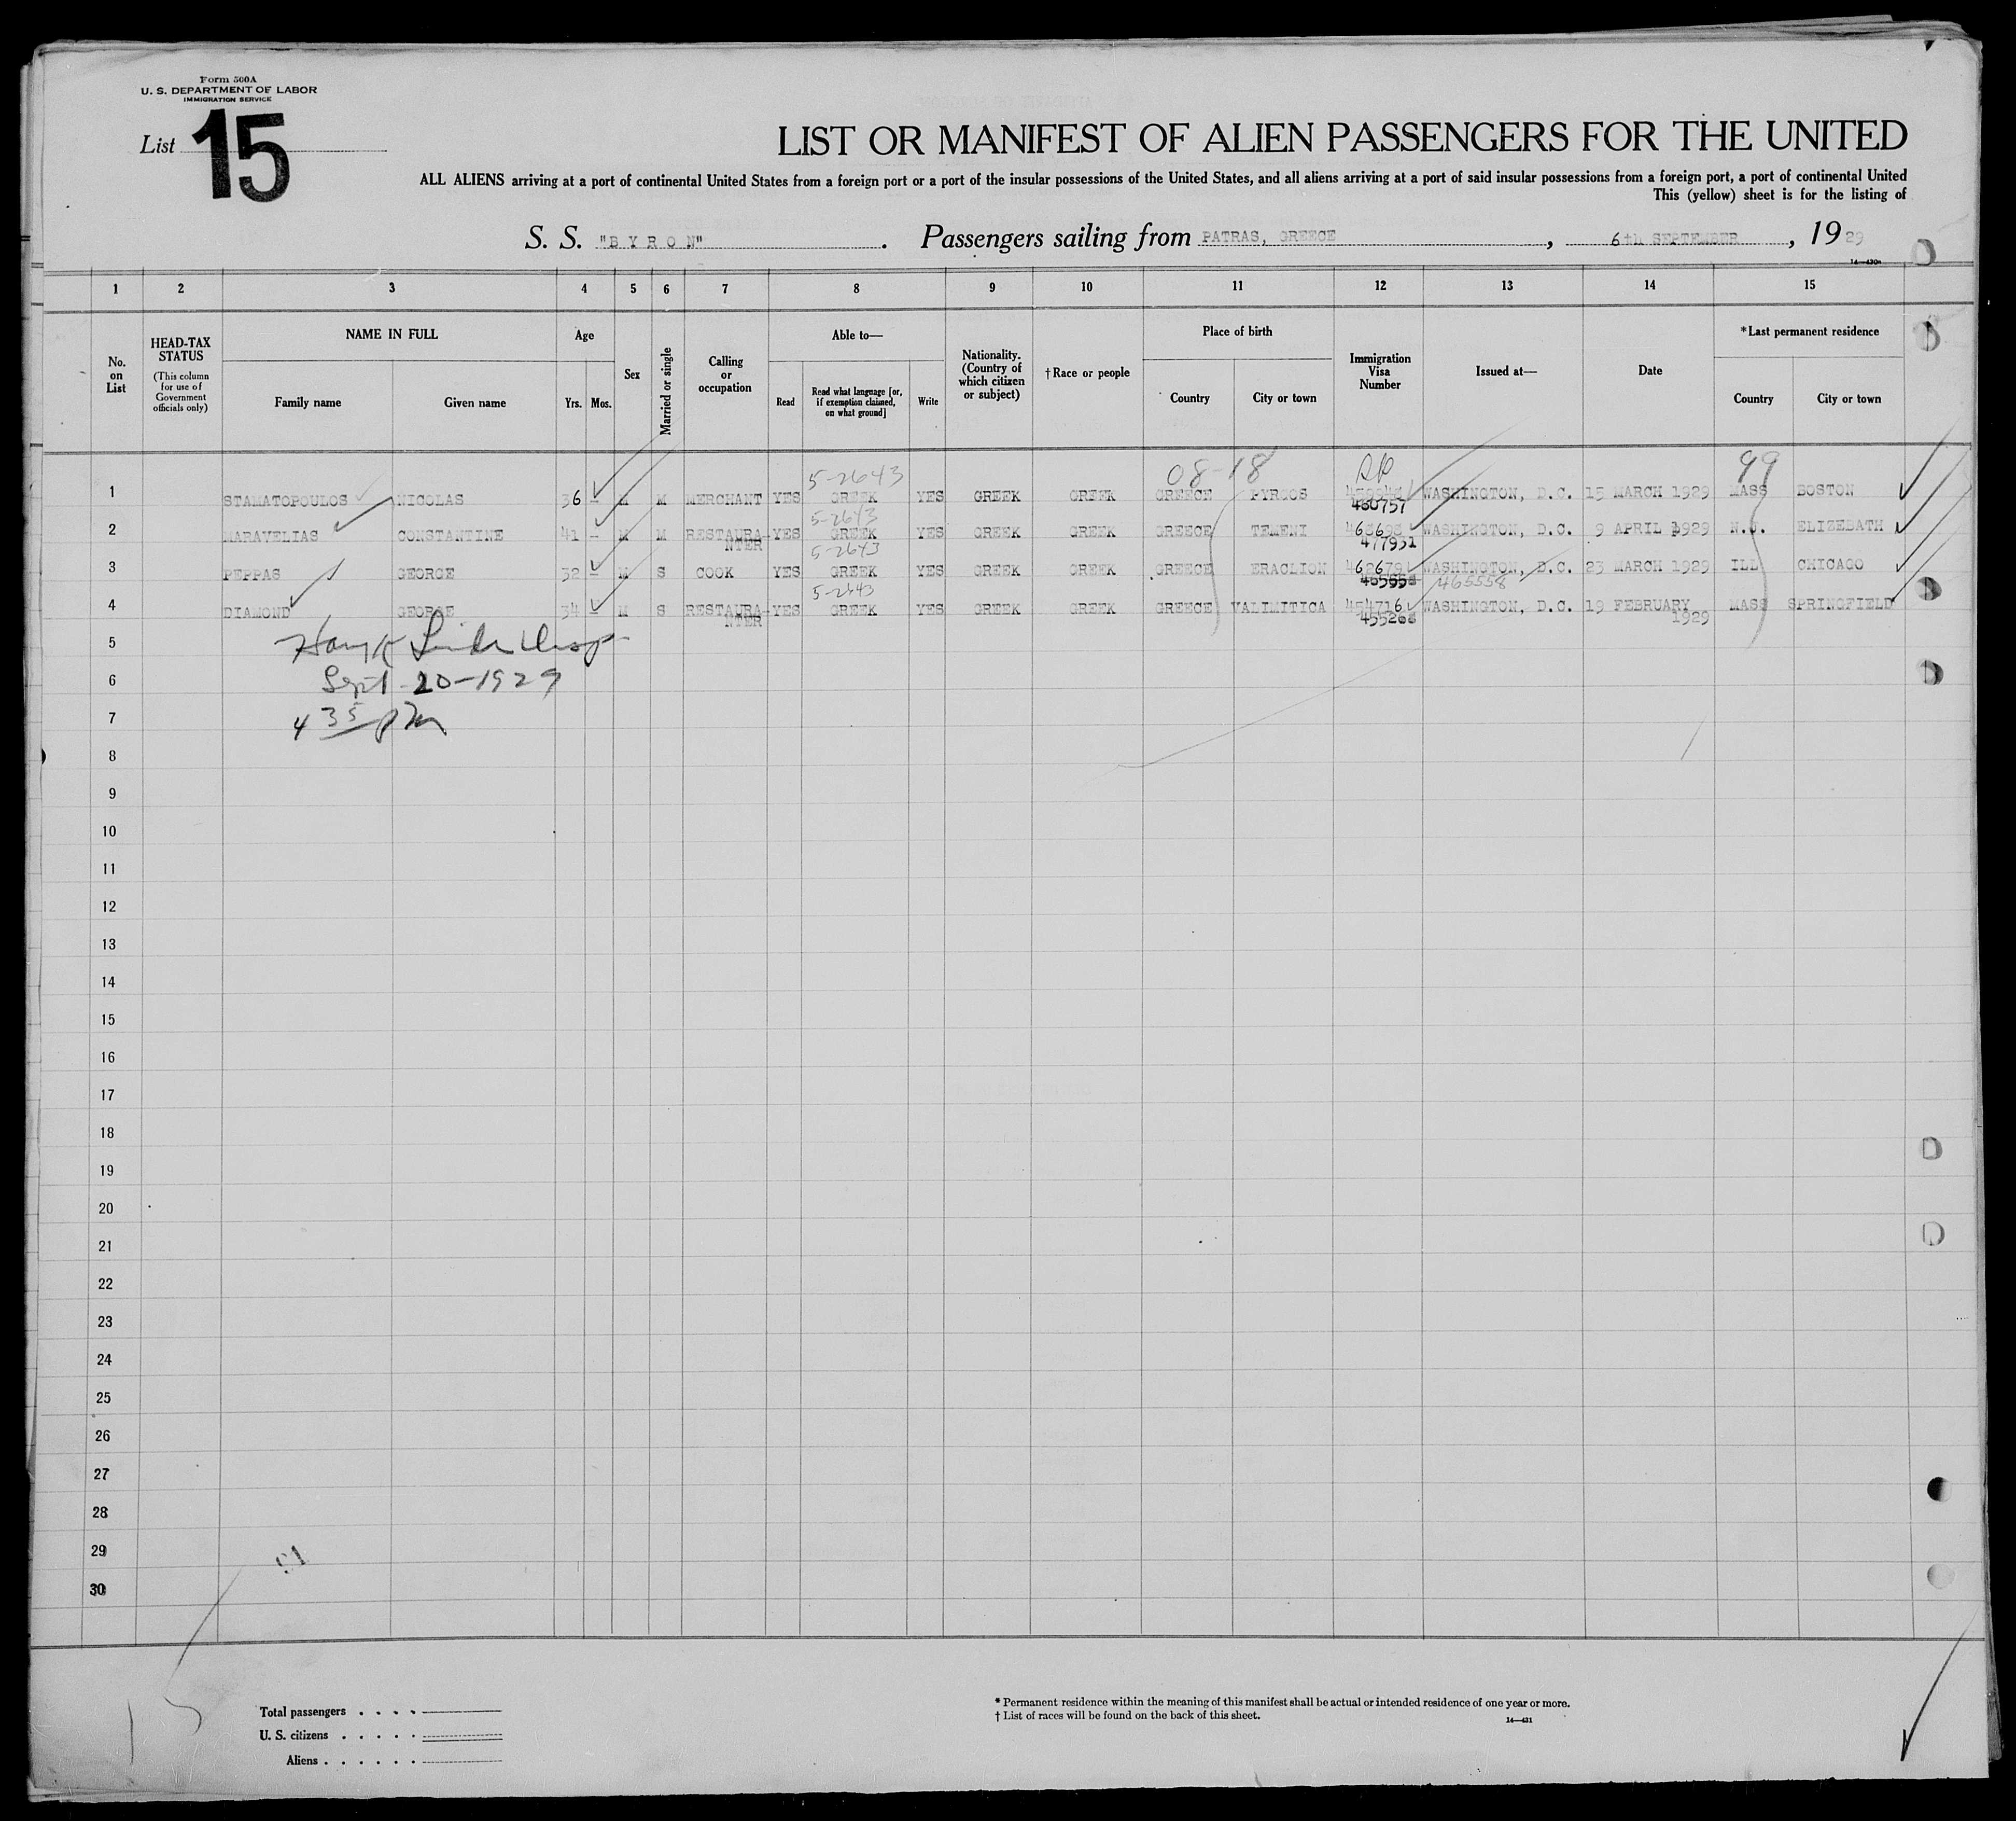 Form 500A
U. S. DEPARTMENT OF LABOR
IMMIGRATION SERVICE
List 15
LIST OR MANIFEST OF ALIEN PASSENGERS FOR THE UNITED
ALL ALIENS arriving at a port of continental United States from a foreign port or a port of the insular possessions of the United States, and all aliens arriving at a port of said insular possessions from a foreign port, a port of continental United
This (yellow) sheet is for the listing of
S. S. "BYRON". Passengers sailing from PATRAS, GREECE, 6th SEPTEMBER, 1929
14—430a
1 2 3 4 5 6 7 8 9 10 11 12 13 14 15
No. on List
HEAD-TAX STATUS (This column for use of Government officials only)
NAME IN FULL
Family name
Given name
Age
Yrs. Mos.
Sex
Married or single
Calling or occupation
Able to—
Read
Read what language [or, if exemption claimed, on what ground]
Write
Nationality. (Country of which citizen or subject)
† Race or people
Place of birth
Country
City or town
Immigration Visa Number
Issued at—
Date
*Last permanent residence
Country
City or town
5-2643 08-18 RP 99
1 STAMATOPOULOS NICOLAS 36 — M M MERCHANT YES GREEK YES GREEK GREEK GREECE PYRGOS WASHINGTON, D.C. 15 MARCH 1929 MASS BOSTON
460757
5-2643
2 MARAVELIAS CONSTANTINE 41 — M M RESTAURA- YES GREEK YES GREEK GREEK GREECE TEMENI 463693 WASHINGTON, D.C. 9 APRIL 1929 N.J. ELIZEBATH
NTER 477931
5-2643
3 PEPPAS GEORGE 32 — M S COOK YES GREEK YES GREEK GREEK GREECE ERACLION 462679 WASHINGTON, D.C. 23 MARCH 1929 ILL CHICAGO
465558
5-2643
4 DIAMOND GEORGE 34 — M S RESTAURA- YES GREEK YES GREEK GREEK GREECE VALIMITICA 454716 WASHINGTON, D.C. 19 FEBRUARY MASS SPRINGFIELD
NTER 455268 1929
5
6 Sept 20-1929
7 4 35 pm
8
9
10
11
12
13
14
15
16
17
18
19
20
21
22
23
24
25
26
27
28
29
30
Total passengers . . . .
U. S. citizens . . . . .
Aliens . . . . . .
* Permanent residence within the meaning of this manifest shall be actual or intended residence of one year or more.
† List of races will be found on the back of this sheet.
14—431